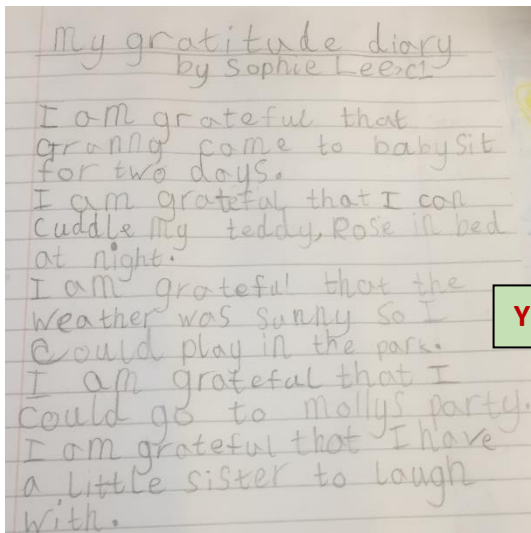 My gratitude diary
by Sophie Lee
I am grateful that
Granny came to babysit
for two days.
I am grateful that I can
cuddle my teddy, Rose in bed
at night.
I am grateful that the
weather was sunny so I
could play in the park.
I am grateful that I
could go to mollys party.
I am grateful that I have
a little sister to laugh
with.
Y